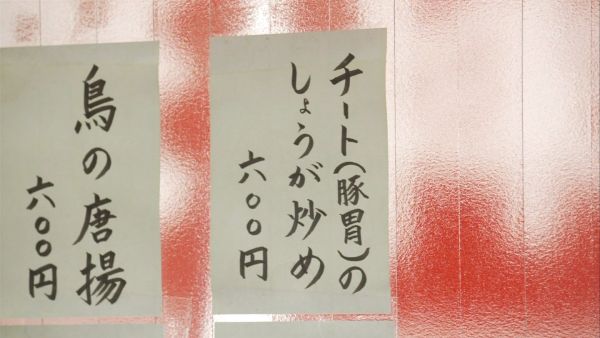 チート(豚胃)の
しょうが炒め
六〇〇円
鳥の唐揚
六〇〇円